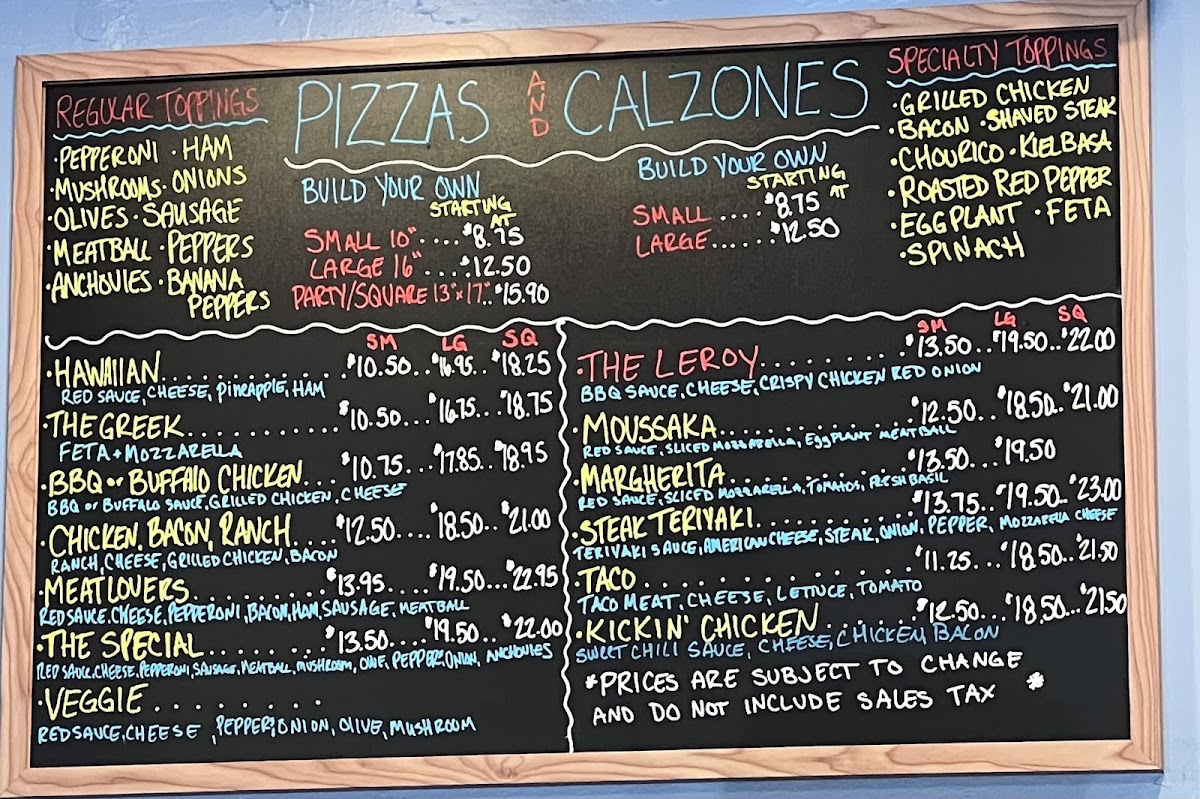 REGULAR TOPPINGS
·PEPPERONI ·HAM
·MUSHROOMS·ONIONS
·OLIVES·SAUSAGE
·MEATBALL·PEPPERS
·ANCHOVIES·BANANA
PEPPERS
PIZZAS AND CALZONES
BUILD YOUR OWN
STARTING
AT
SMALL 10"....$8.75
LARGE 16"....$12.50
PARTY/SQUARE 13"x17"..$15.90
BUILD YOUR OWN
STARTING
AT
SMALL....$8.75
LARGE......$12.50
SPECIALTY TOPPINGS
·GRILLED CHICKEN
·BACON ·SHAVED STEAK
·CHOURICO·KIELBASA
·ROASTED RED PEPPER
·EGGPLANT ·FETA
·SPINACH
SM LG SQ
·HAWAIIAN.............$10.50...$16.95...$18.25
RED SAUCE, CHEESE, PINEAPPLE, HAM
·THE GREEK............$10.50...$16.75...$18.75
FETA + MOZZARELLA
·BBQ or BUFFALO CHICKEN...$10.75...$17.85..$18.95
BBQ or BUFFALO SAUCE, GRILLED CHICKEN, CHEESE
·CHICKEN, BACON, RANCH....$12.50....$18.50..$21.00
RANCH, CHEESE, GRILLED CHICKEN, BACON
·MEATLOVERS..........$13.95....$19.50...$22.95
RED SAUCE, CHEESE, PEPPERONI, BACON, HAM, SAUSAGE, MEATBALL
·THE SPECIAL........$13.50....$19.50...$22.00
RED SAUCE, CHEESE, PEPPERONI, SAUSAGE, MEATBALL, MUSHROOM, OLIVE, PEPPER, ONION, ANCHOVIES
·VEGGIE.........
RED SAUCE, CHEESE, PEPPER, ONION, OLIVE, MUSHROOM
SM LG SQ
·THE LEROY..........$13.50...$19.50...$22.00
BBQ SAUCE, CHEESE, CRISPY CHICKEN RED ONION
·MOUSSAKA............$12.50...$18.50..$21.00
RED SAUCE, SLICED MOZZARELLA, EGGPLANT MEATBALL
·MARGHERITA..........$13.50...$19.50
RED SAUCE, SLICED MOZZARELLA, TOMATOS, FRESH BASIL
·STEAK TERIYAKI.........$13.75...$19.50..$23.00
TERIYAKI SAUCE, AMERICAN CHEESE, STEAK, ONION, PEPPER, MOZZARELLA CHEESE
·TACO................$11.25...$18.50..$21.50
TACO MEAT, CHEESE, LETTUCE, TOMATO
·KICKIN' CHICKEN.......$12.50...$18.50...$21.50
SWEET CHILI SAUCE, CHEESE, CHICKEN, BACON
*PRICES ARE SUBJECT TO CHANGE
AND DO NOT INCLUDE SALES TAX *